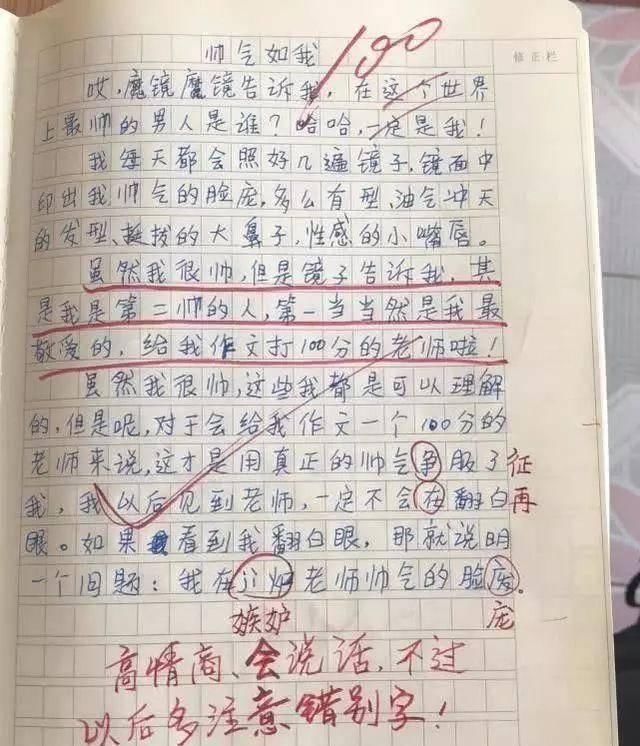 帅气如我
100
修正栏
哎,魔镜魔镜告诉我,在这个世界
上最帅的男人是谁?哈哈,一定是我!
我每天都会照好几遍镜子,镜面中
印出我帅气的脸庞,多么有型、油气冲天
的发型、挺拔的大鼻子,性感的小嘴唇。
虽然我很帅,但是镜子告诉我,其
是我是第二帅的人,第一当当然是我最
敬爱的,给我作文打100分的老师啦!
虽然我很帅,这些我都是可以理解
的,但是呢,对于会给我作文一个100分的
老师来说,这才是用真正的帅气争服了 征
我,我以后见到老师,一定不会在翻白 再
眼。如果看到我翻白眼,那就说明
一个问题:我在 老师帅气的脸
嫉妒 庞
高情商、会说话,不过
以后多注意错别字!